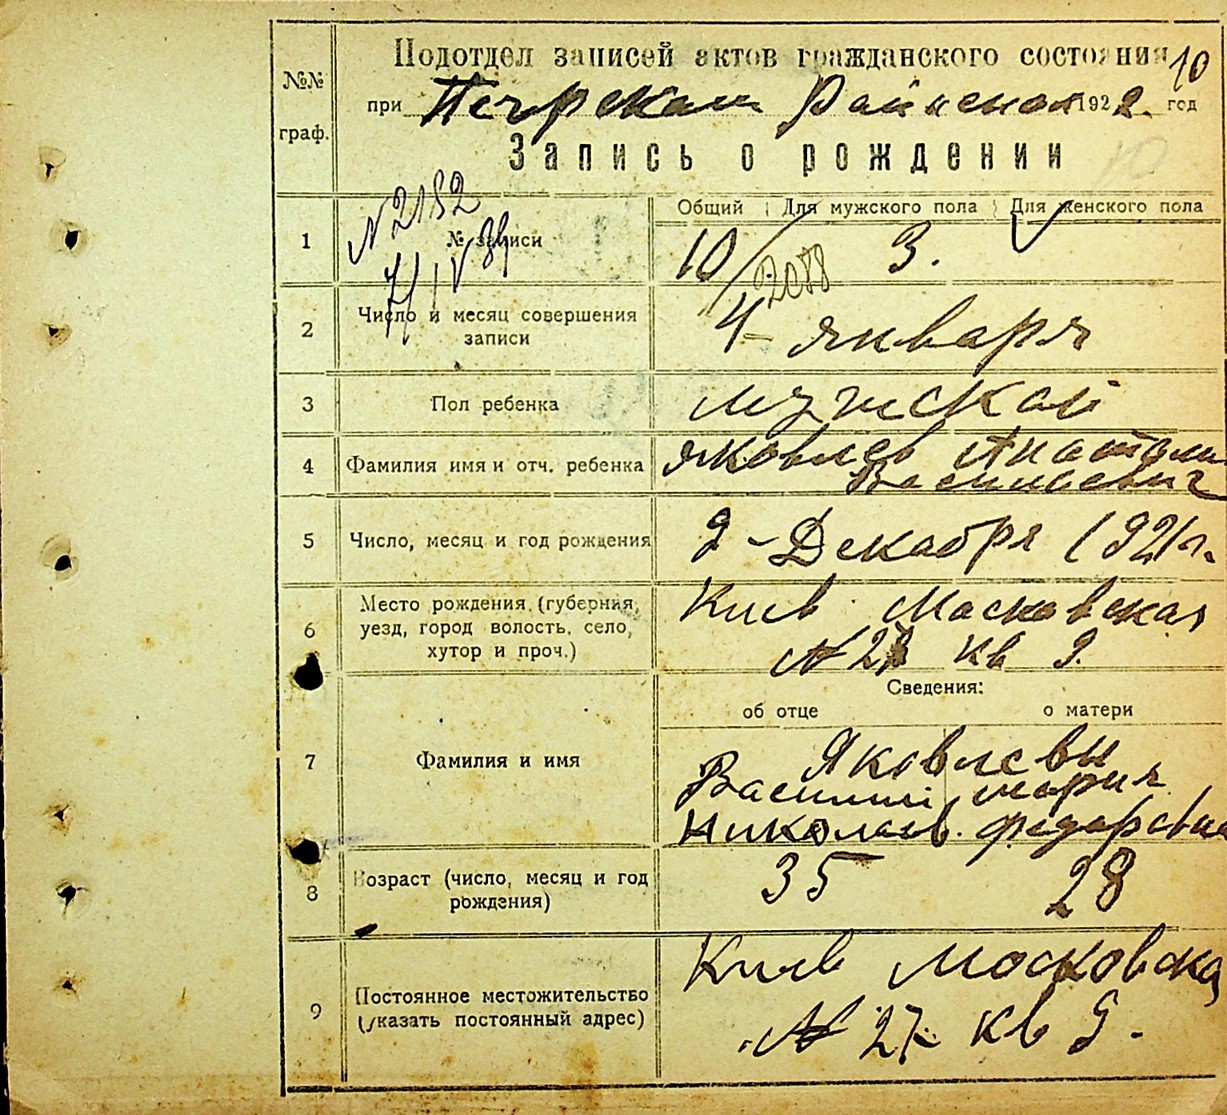 №№ граф.
Подотдел записей актов гражданского состояния 10
при Печерском Райисполк 1922. год
Запись о рождении
10
N 2182
7/IV 39
Общий Для мужского пола Для женского пола
1 № записи 10 3.
2088
2 Число и месяц совершения записи 4 – января
3 Пол ребенка мужской
4 Фамилия имя и отч. ребенка Яковлев Анатолий
Васильевич
5 Число, месяц и год рождения 9 – Декабря 1921 г.
6 Место рождения (губерния,
уезд, город волость, село,
хутор и проч.)
Киев Московская
№ 27 кв 9.
Сведения:
об отце о матери
7 Фамилия и имя
Яковлевы
Василий Мария
Николаев. Федоровна
8 Возраст (число, месяц и год
рождения)
35 28
9 Постоянное местожительство
(указать постоянный адрес)
Киев Московская
№ 27 кв 9.